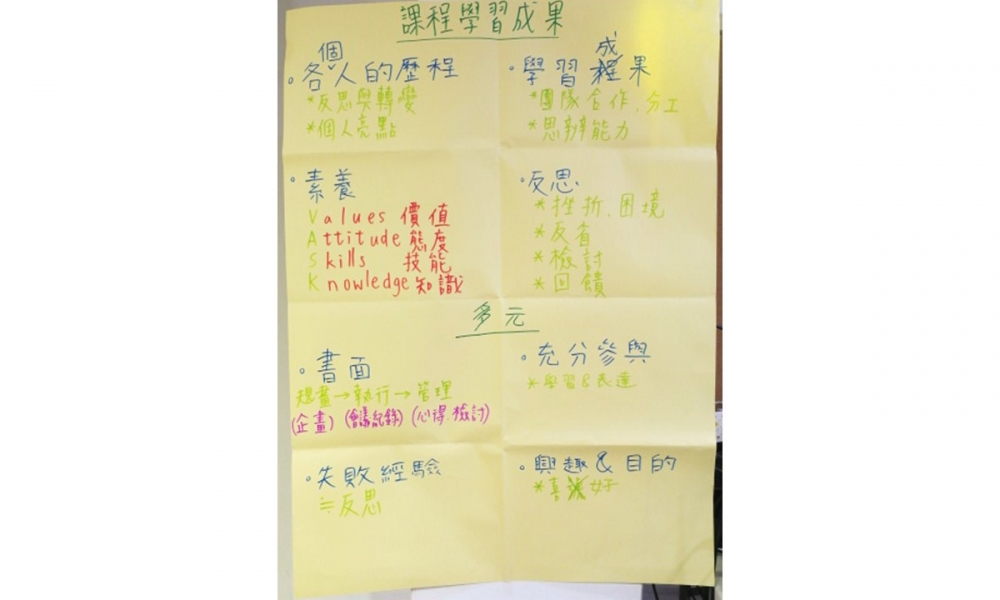 課程學習成果
個
。各人的歷程
*反思與轉變
*個人亮點
成
。學習程果
*團隊合作、分工
*思辨能力
。素養
Values 價值
Attitude 態度
Skills 技能
Knowledge 知識
。反思
*挫折、困境
*反省
*檢討
*回饋
多元
。書面
規畫→執行→管理
(企畫) (會議紀錄) (心得檢討)
。充分參與
*學習&表達
。失敗經驗
≒反思
。興趣&目的
*喜好